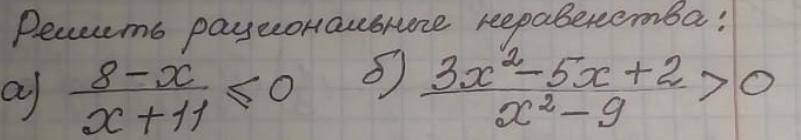 Решить рациональные неравенства:
а) (8-x)/(x+11) ≤ 0 б) (3x²-5x+2)/(x²-9) > 0